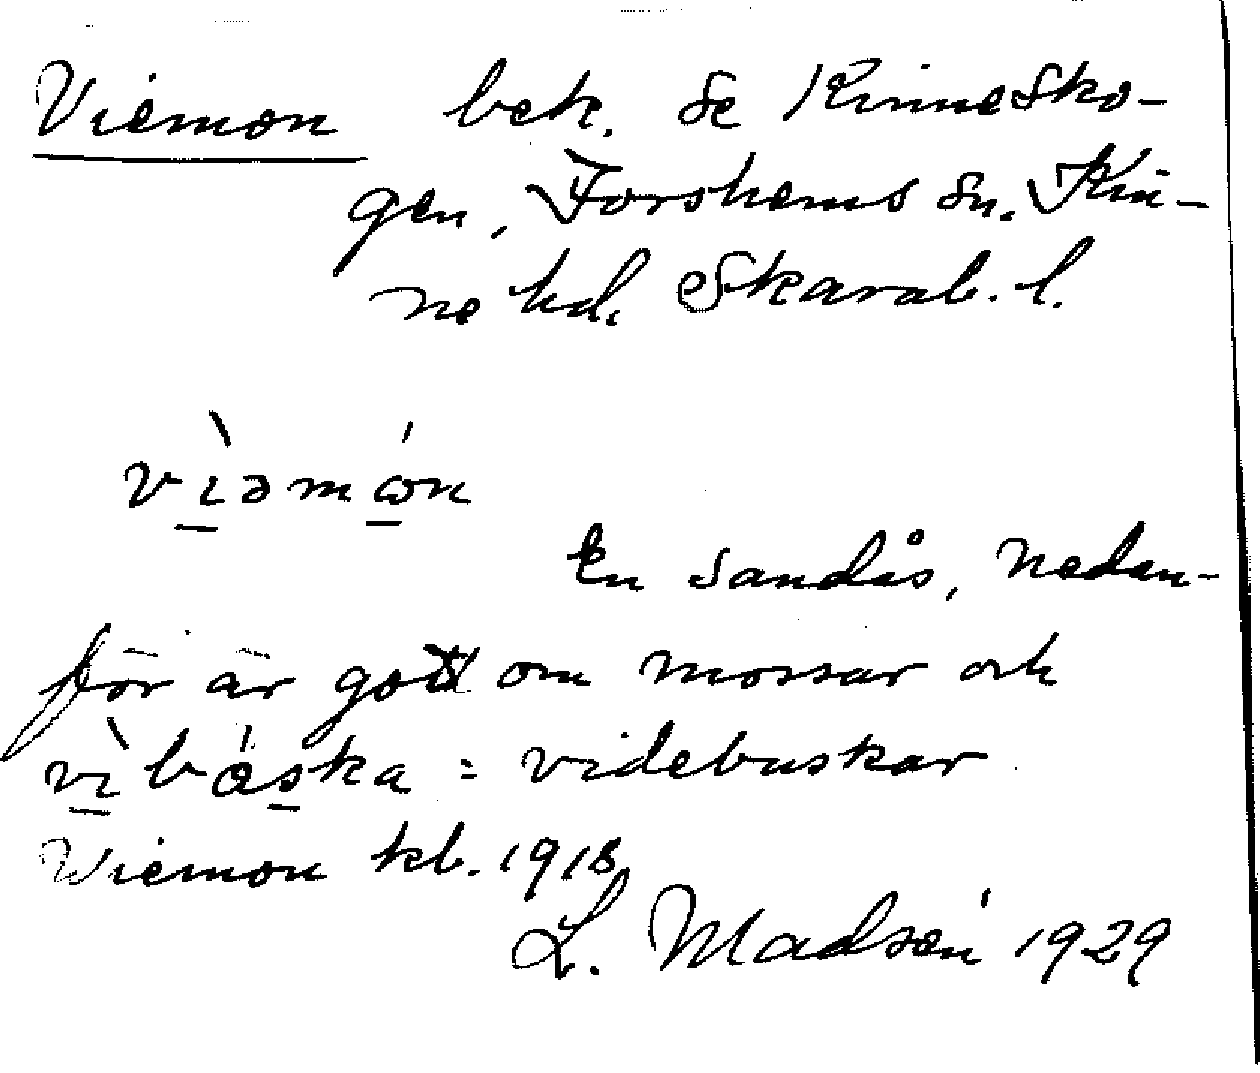 Viemon bek. Se Kinnesko-
gen, Forshems sn. Kin-
ne hd. Skarab. l.
vìəmώn
En sandås, nedan-
för är gott om mossar och
vìbǻska = videbuskar
Wiemon kb. 1918
L. Madsén 1929